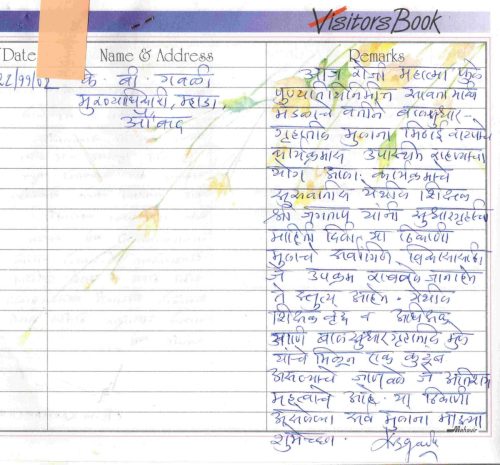 Visitors Book
Date
Name & Address
Remarks
22/11/02
के. बी. गवळी
मुख्याधिकारी, म्हाडा
औ'बाद
आज रोजी महात्मा फुले
पुण्यतिथिनिमित्त सावता माळी
मंडळाचे वतीने बालसुधार-
गृहातील मुलांना मिठाई वाटपाचे
कार्यक्रमास उपस्थित राहण्याचा
योग आला. कार्यक्रमाचे
सुरुवातीस येथील शिक्षक
श्री जगताप यांनी सुधारगृहाची
माहिती दिली. या ठिकाणी
मुलांचे सर्वांगिण विकासासाठी
जे उपक्रम राबवले जातात
ते स्तुत्य आहेत. येथील
शिक्षक वृंद व अधिक्षक
आणि बालसुधारगृहातील मुले
यांचे मिळून एक कुटुंब
असल्याचे जाणवले जे अतिशय
महत्वाचे आहे. या ठिकाणी
असलेल्या सर्व मुलांना माझ्या
शुभेच्छा.
Mahavir